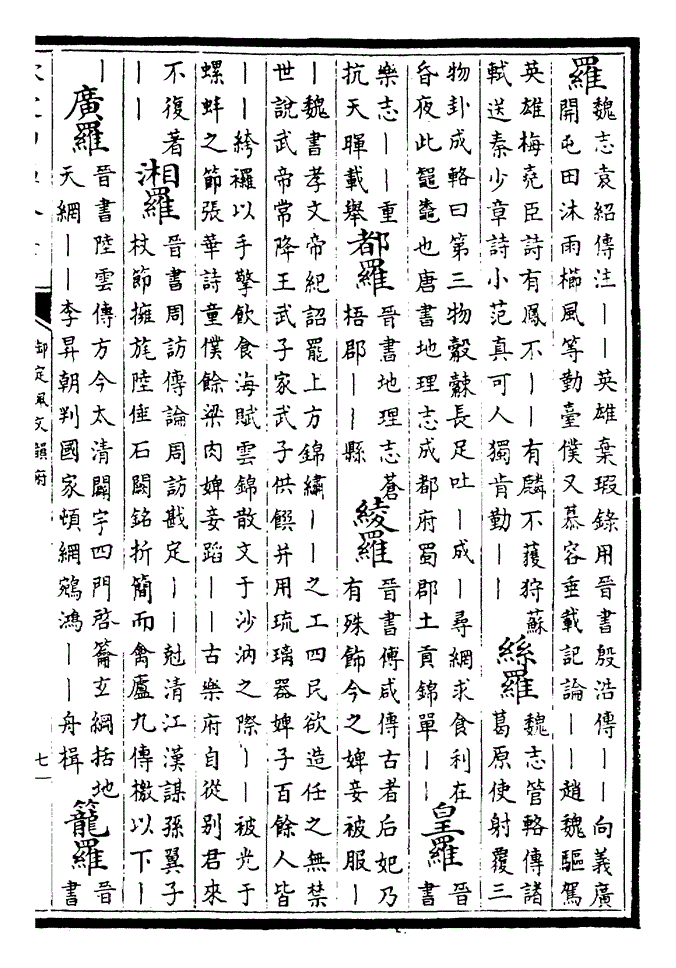 羅
魏志袁紹傳注――英雄棄瑕錄用晉書殷浩傳――向義廣
開屯田沐雨櫛風等勤臺僕又慕容垂載記論――趙魏驅駕
英雄梅堯臣詩有鳳不――有麟不䕶狩蘇
軾送秦少章詩小范真可人獨肯勤――
絲羅
魏志管輅傳諸
葛原使射覆三
物卦成輅曰第三物觳觫長足吐―成―尋網求食利在
昏夜此鼅鼄也唐書地理志成都府蜀郡土貢錦單――
皇羅
晉
書
樂志――重
抗天暉載舉
都羅
晉書地理志蒼
梧郡――縣
綾羅
晉書傳咸傳古者后妃乃
有殊飾今之婢妾被服―
―魏書孝文帝紀詔罷上方錦繡――之工四民欲造任之無禁
世說武帝常降王武子家武子供饌并用琉璃器婢子百餘人皆
――絝襬以手擎飲食海賦雲錦散文于沙汭之際――被光于
螺蚌之節張華詩童僕餘梁肉婢妾蹈――古樂府自從別君來
不復著
――
湘羅
晉書周訪傳論周訪戡定――尅清江漢謀孫翼子
杖節擁旄陸倕石闕銘折簡而禽廬九傳檄以下―
―
廣羅
晉書陸雲傳方今太清闢宇四門啓籥玄網括地
天網――李昇朝判國家頓網鵷鴻――舟楫
籠羅
晉
書
御定佩文韻府
七一